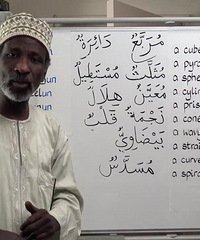 مُرَبَّعٌ دَائِرَةٌ
مُثَلَّثٌ مُسْتَطِيلٌ
مُعَيَّنٌ هِلَالٌ
نَجْمَةٌ قَلْبٌ
بَيْضَاوِيٌّ
مُسَدَّسٌ
a cube
a pyra
a sphe
a cylin
a pris
a cone
a wav
a strai
a curve
a spira